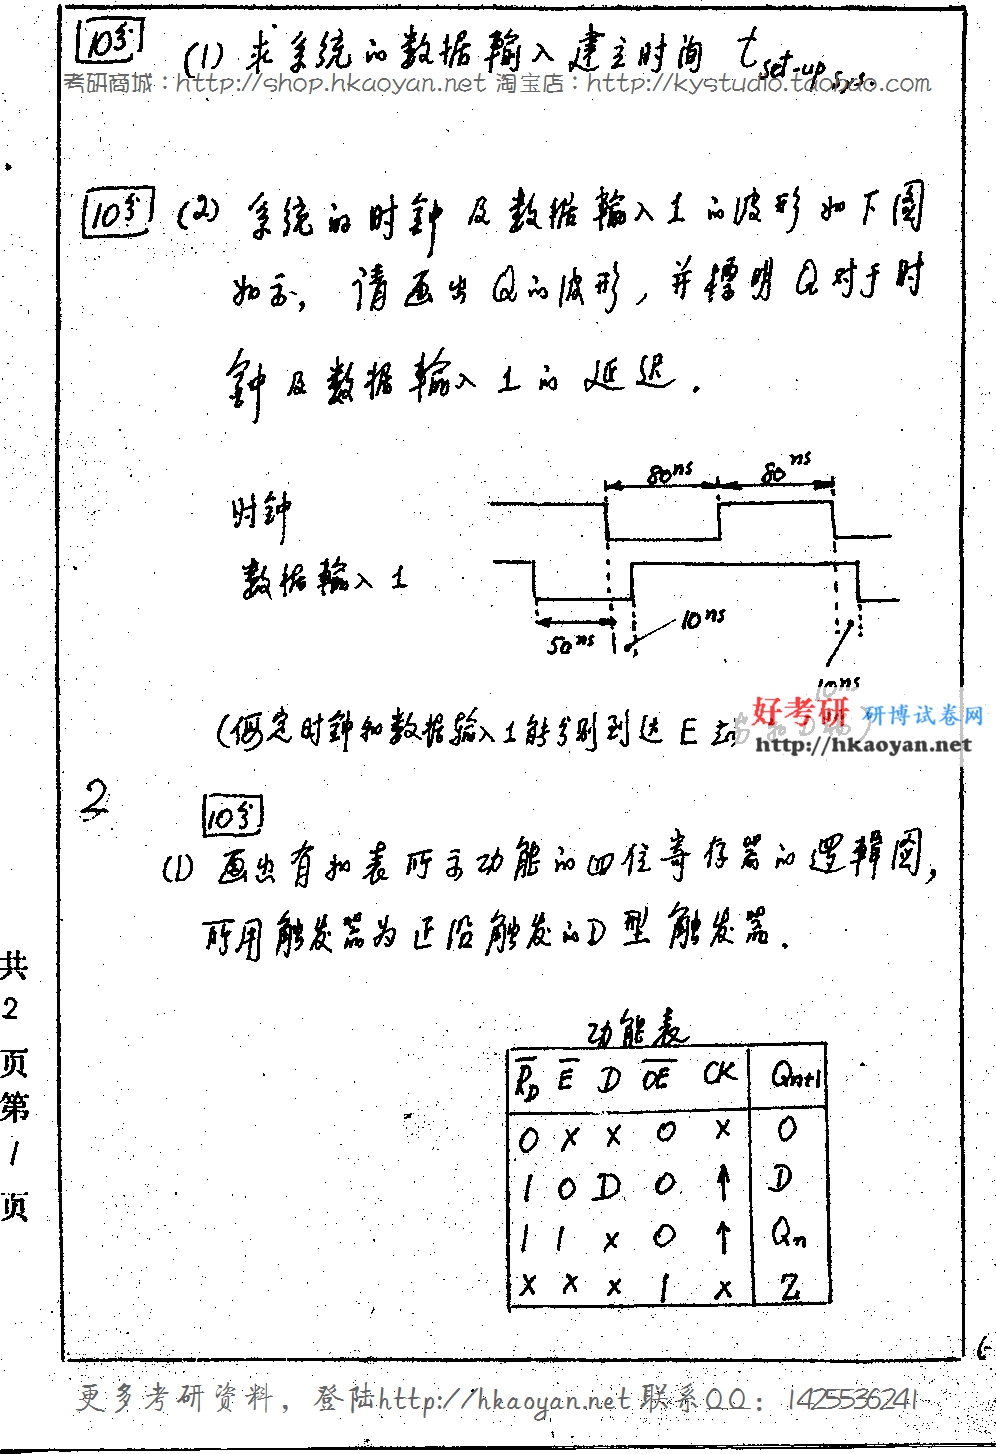 10分 (1) 求系统的数据输入建立时间 t set-up sys.
考研商城：http://shop.hkaoyan.net 淘宝店：http://kystudio.taobao.com
10分 (2) 系统的时钟及数据输入1的波形如下图
如示，请画出Q的波形，并标明Q对于时
钟及数据输入1的延迟.
80ns 80ns
时钟
数据输入1
50ns 10ns
10ns
(假定时钟和数据输入1能分别到达E
好考研 研博试卷网
http://hkaoyan.net
2
10分
(1) 画出有如表所示功能的四位寄存器的逻辑图,
所用触发器为正沿触发的D型触发器.
功能表
R̅D E̅ D O̅E̅ CK Qn+1
0 x x 0 x 0
1 0 D 0 ↑ D
1 1 x 0 ↑ Qn
x x x 1 x Z
共2页第1页
更多考研资料，登陆http://hkaoyan.net 联系QQ：1425536241